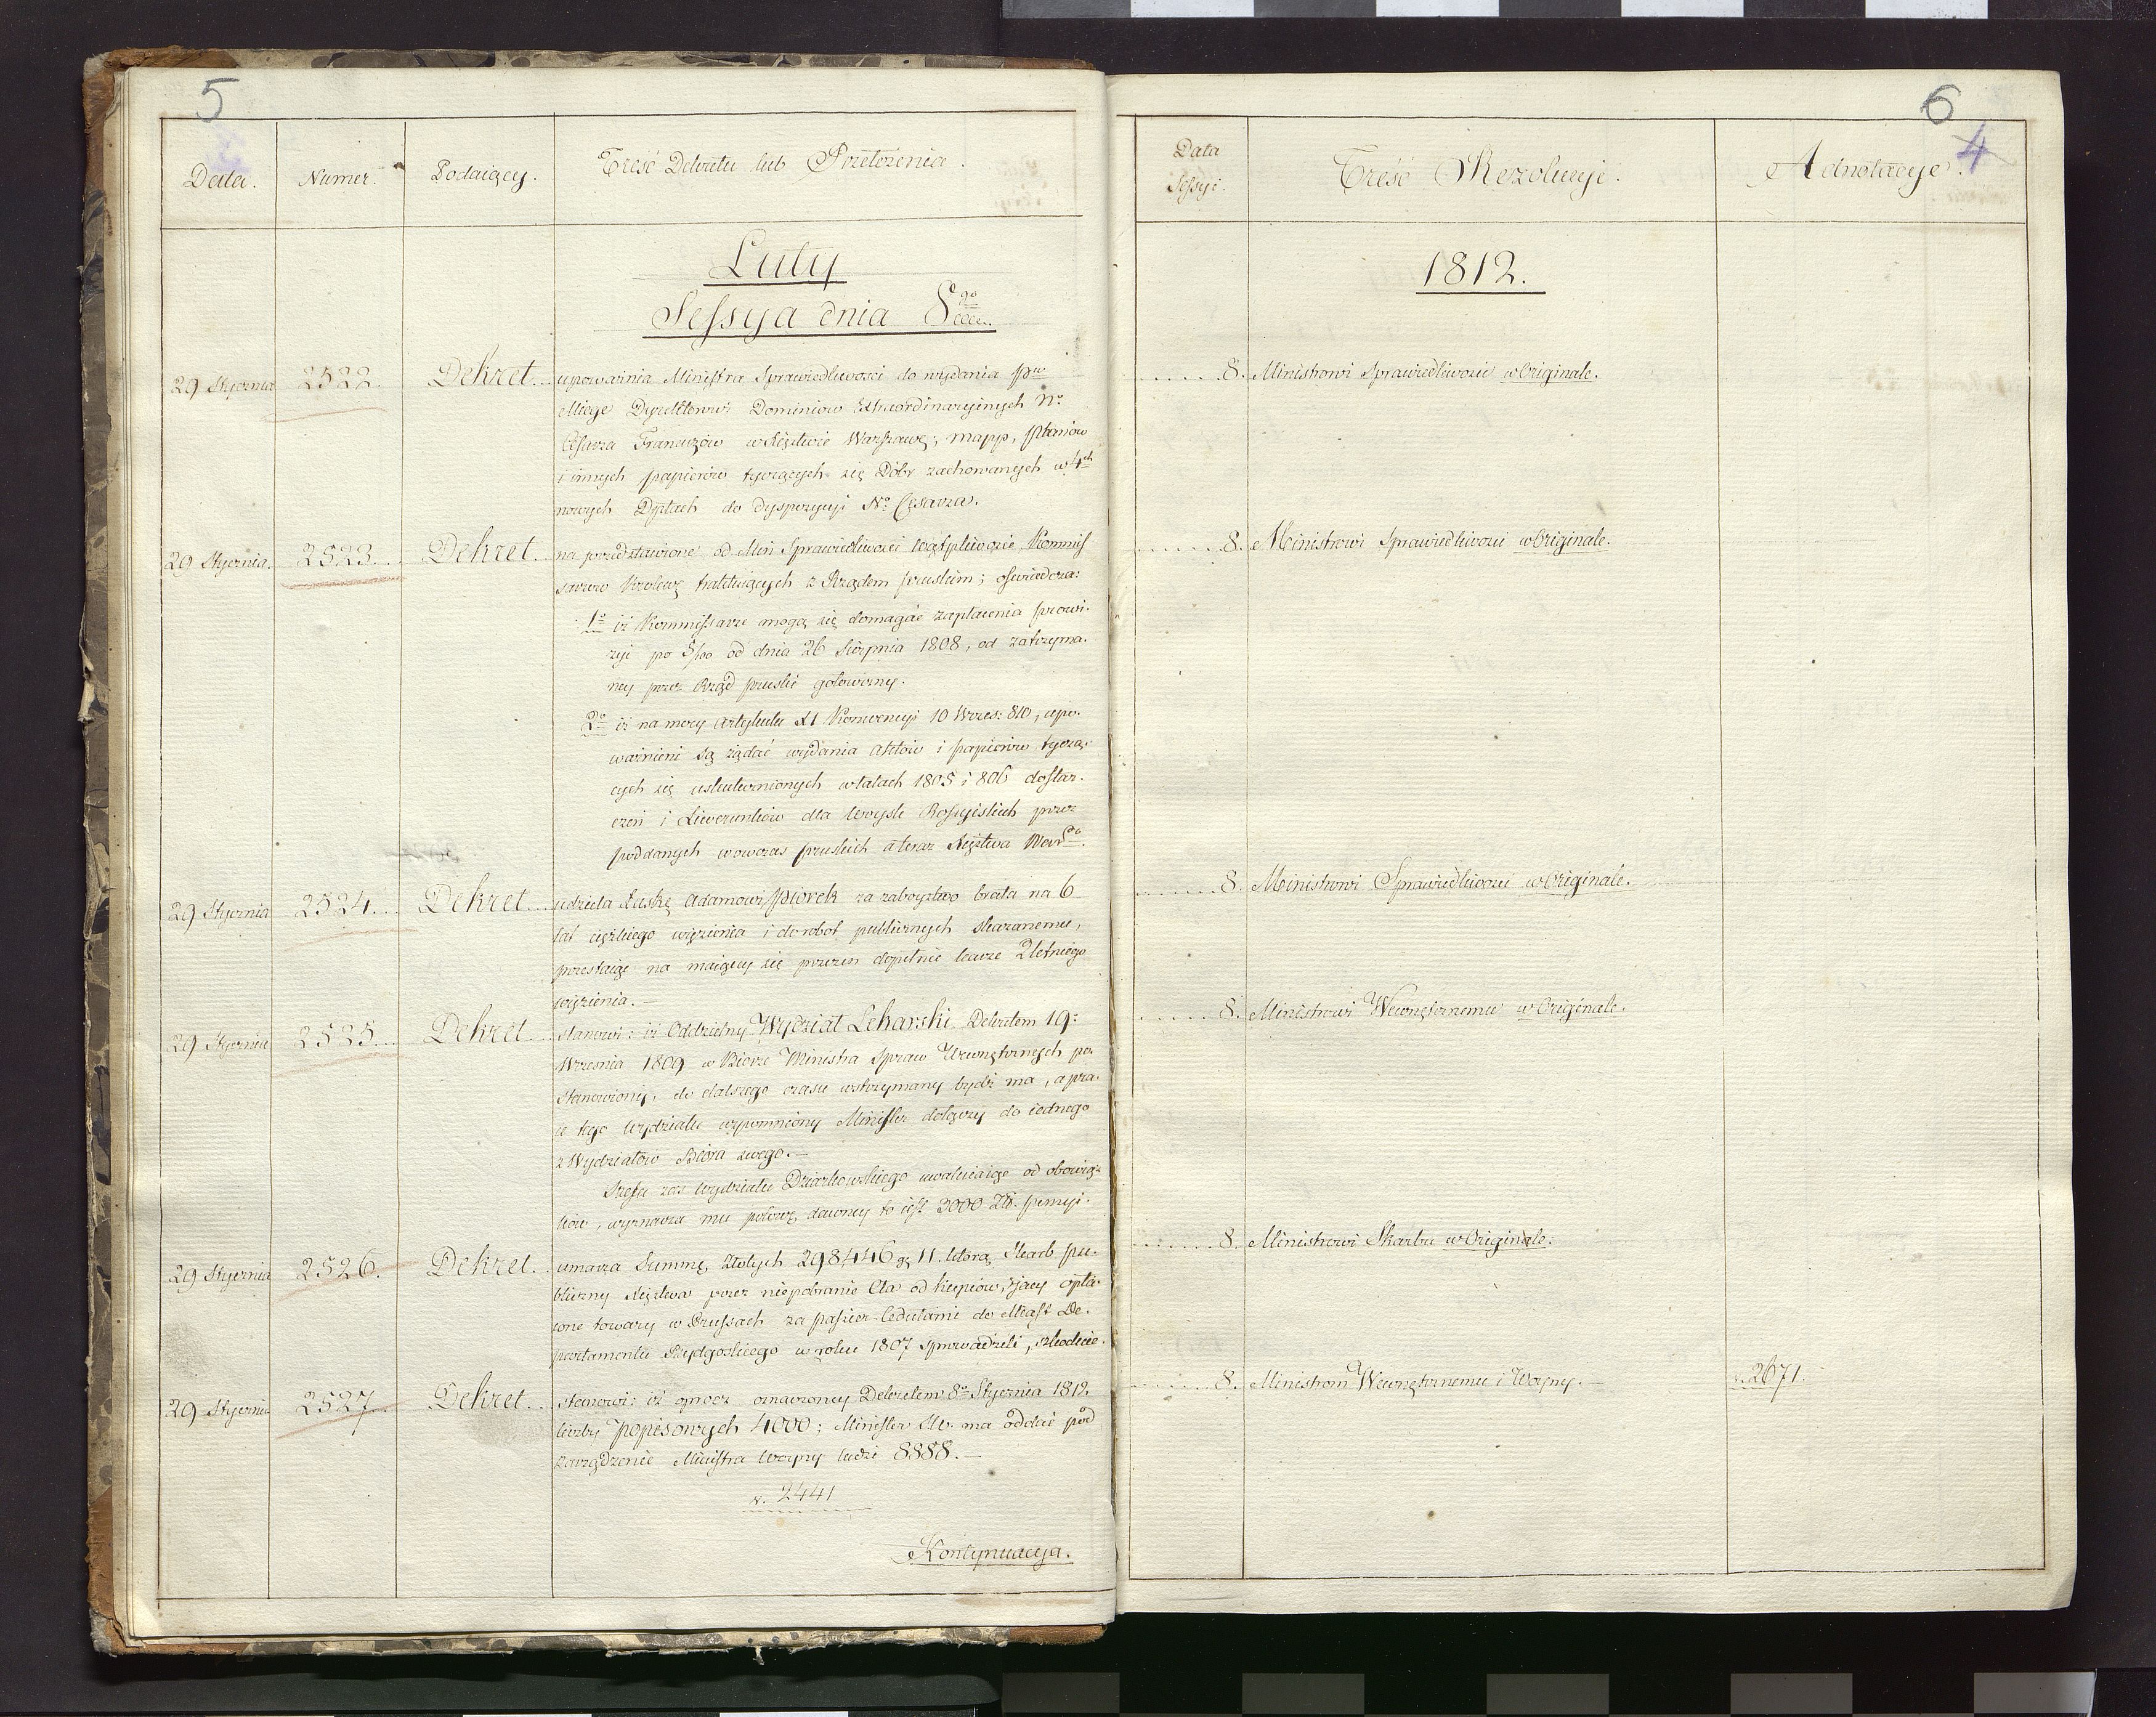 5
Data.
Numer.
Podaiący.
Treść Dekretu lub Przełożenia.
Luty
Sessya dnia 8go
29 Stycznia
2522.
Dekret
upoważnia Ministra Sprawiedliwości do wydania
Miege Dyrektorowi Dominiow Extraordinaryinych No
Cesarza Francuzów w Xięstwie Warszawę; mapp, planiów
i innych papierów tyczących się Dóbr zachowanych w 4ch
nowych Dpttach do dyspozycyi No Cesarza.
29 Stycznia.
2523
Dekret
na przedstawione od Min Sprawiedliwości wątpliwoście Kommis
sarzow Krolewę traktuiących z Rządem pruskim; oświadcza:
1o iż Kommissarze mogą się domagać zapłacenia prowi-
zyi po 5/100 od dnia 26 Sierpnia 1808, od zatrzyma-
ney przez Rząd pruski gotowizny.
2o iż na mocy Artykułu 21 Konwencyi 10 Wrzes: 810, upo-
ważnieni są żądać wydania aktów i papierów tyczą-
cych się uskutecznionych w latach 1805 i 806 dostar-
czeń i Liwerunków dla woysk Rossyiskich przez
poddanych wowczas pruskich a teraz Xięstwa Warsgo.
29 Stycznia
2524
Dekret
udziela Łaskę Adamowi Piorek za zaboystwo brata na 6
lat ciężkiego więzienia i do robot publicznych skazanemu,
przestaiąc na maiącey się przezeń dopełnić karze 2letniego
więzienia.—
29 Stycznia
2525
Dekret
stanowi: iż Oddzielny Wydział Lekarski Dekretem 19:
Wrzesnia 1809 w Biorze Ministra Spraw Wewnętrznych po-
stanowiony, do dalszego czasu wstrzymany bydź ma, a pra-
ce tego wydziału wspomniony Minister dołączy do iednego
z Wydziałów Bióra swego.—
Szefa zaś wydziału Dziarkowskiego uwalniaiąc od obowiąz-
ków, wyznacza mu połowę dawney to iest 3000 Złł. pensyi.
29 Stycznia
2526.
Dekret.
umarza Summę, Złotych 298446 gr 11. którą Skarb pu-
bliczny Xięstwa przez niepobranie Cła od kupców, iacy opła-
cone towary w Prussach za passier-Cedulami do Miast De-
partamentu Bydgoskiego w roku 1807 sprowadzili, szkoduie.
29 Stycznia
2527.
Dekret.
stanowi: iż oprocz oznaczoney Dekretem 8o Stycznia 1812.
liczby Popisowych 4000; Minister SW. ma oddać pod
zarządzenie Ministra Woyny ludzi 8888.—
v. 2441
Kontynuacya.
6
4
Data
Sessyi.
Treść Rezolucyi.
Adnotacye.
1812.
8. Ministrowi Sprawiedliwości w Originale.
8. Ministrowi Sprawiedliwości w Originale.
8. Ministrowi Sprawiedliwości w Originale.
8. Ministrowi Wewnętrznemu w Originale.
8. Ministrowi Skarbu w Originale.
8. Ministrom Wewnętrznemu i Woyny.—
v. 2671.